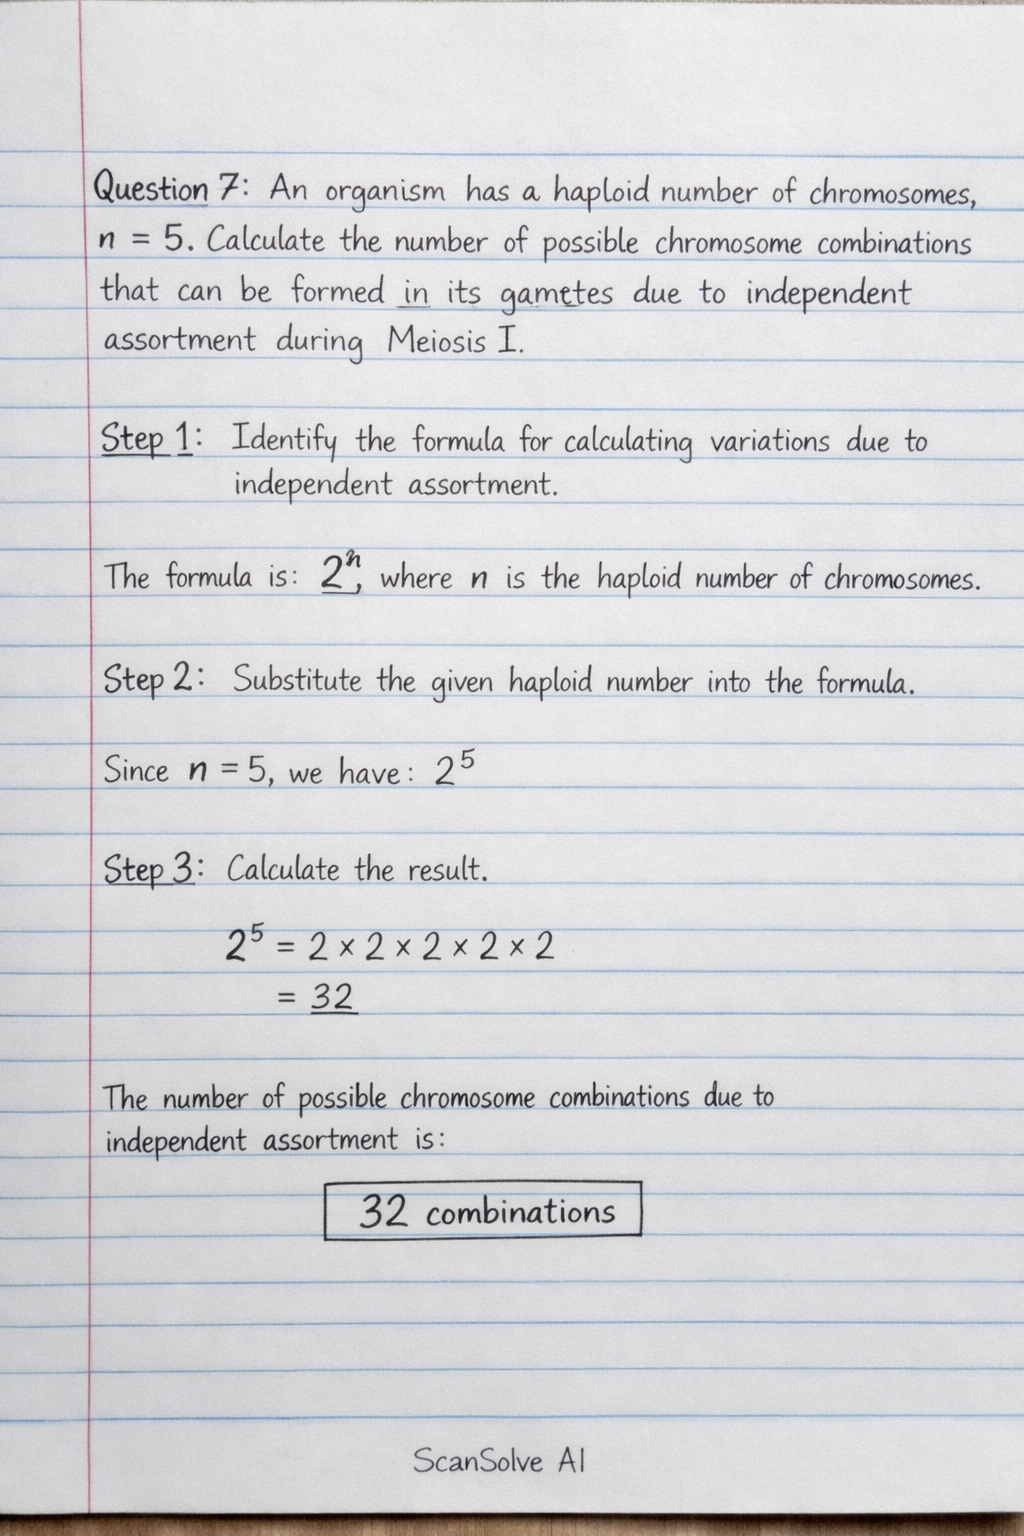 Question 7: An organism has a haploid number of chromosomes,
n = 5. Calculate the number of possible chromosome combinations
that can be formed in its gametes due to independent
assortment during Meiosis I.
Step 1: Identify the formula for calculating variations due to
independent assortment.
The formula is: 2ⁿ, where n is the haploid number of chromosomes.
Step 2: Substitute the given haploid number into the formula.
Since n = 5, we have: 2⁵
Step 3: Calculate the result.
2⁵ = 2 × 2 × 2 × 2 × 2
= 32
The number of possible chromosome combinations due to
independent assortment is:
32 combinations
ScanSolve AI